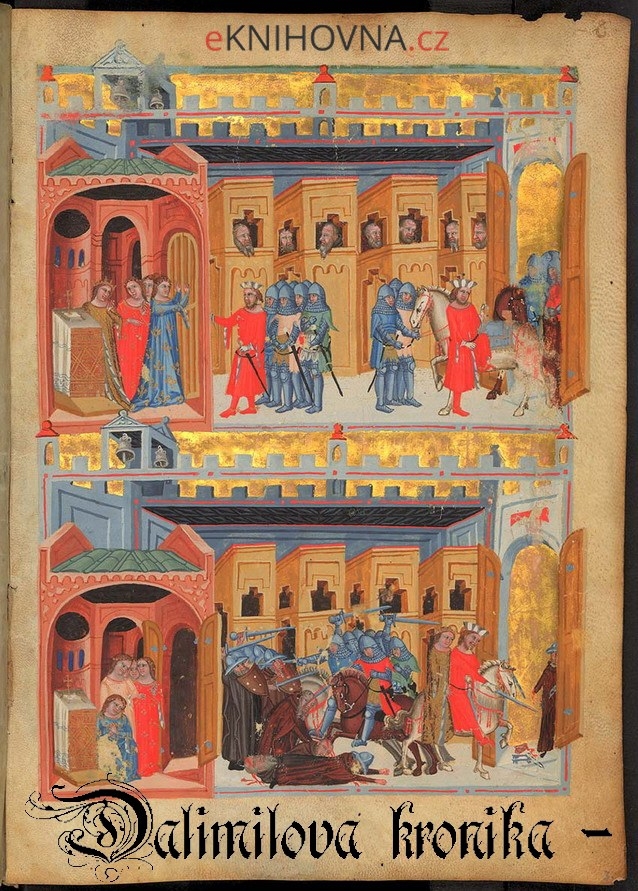 eKNIHOVNA.cz
Dalimilova kronika - 1